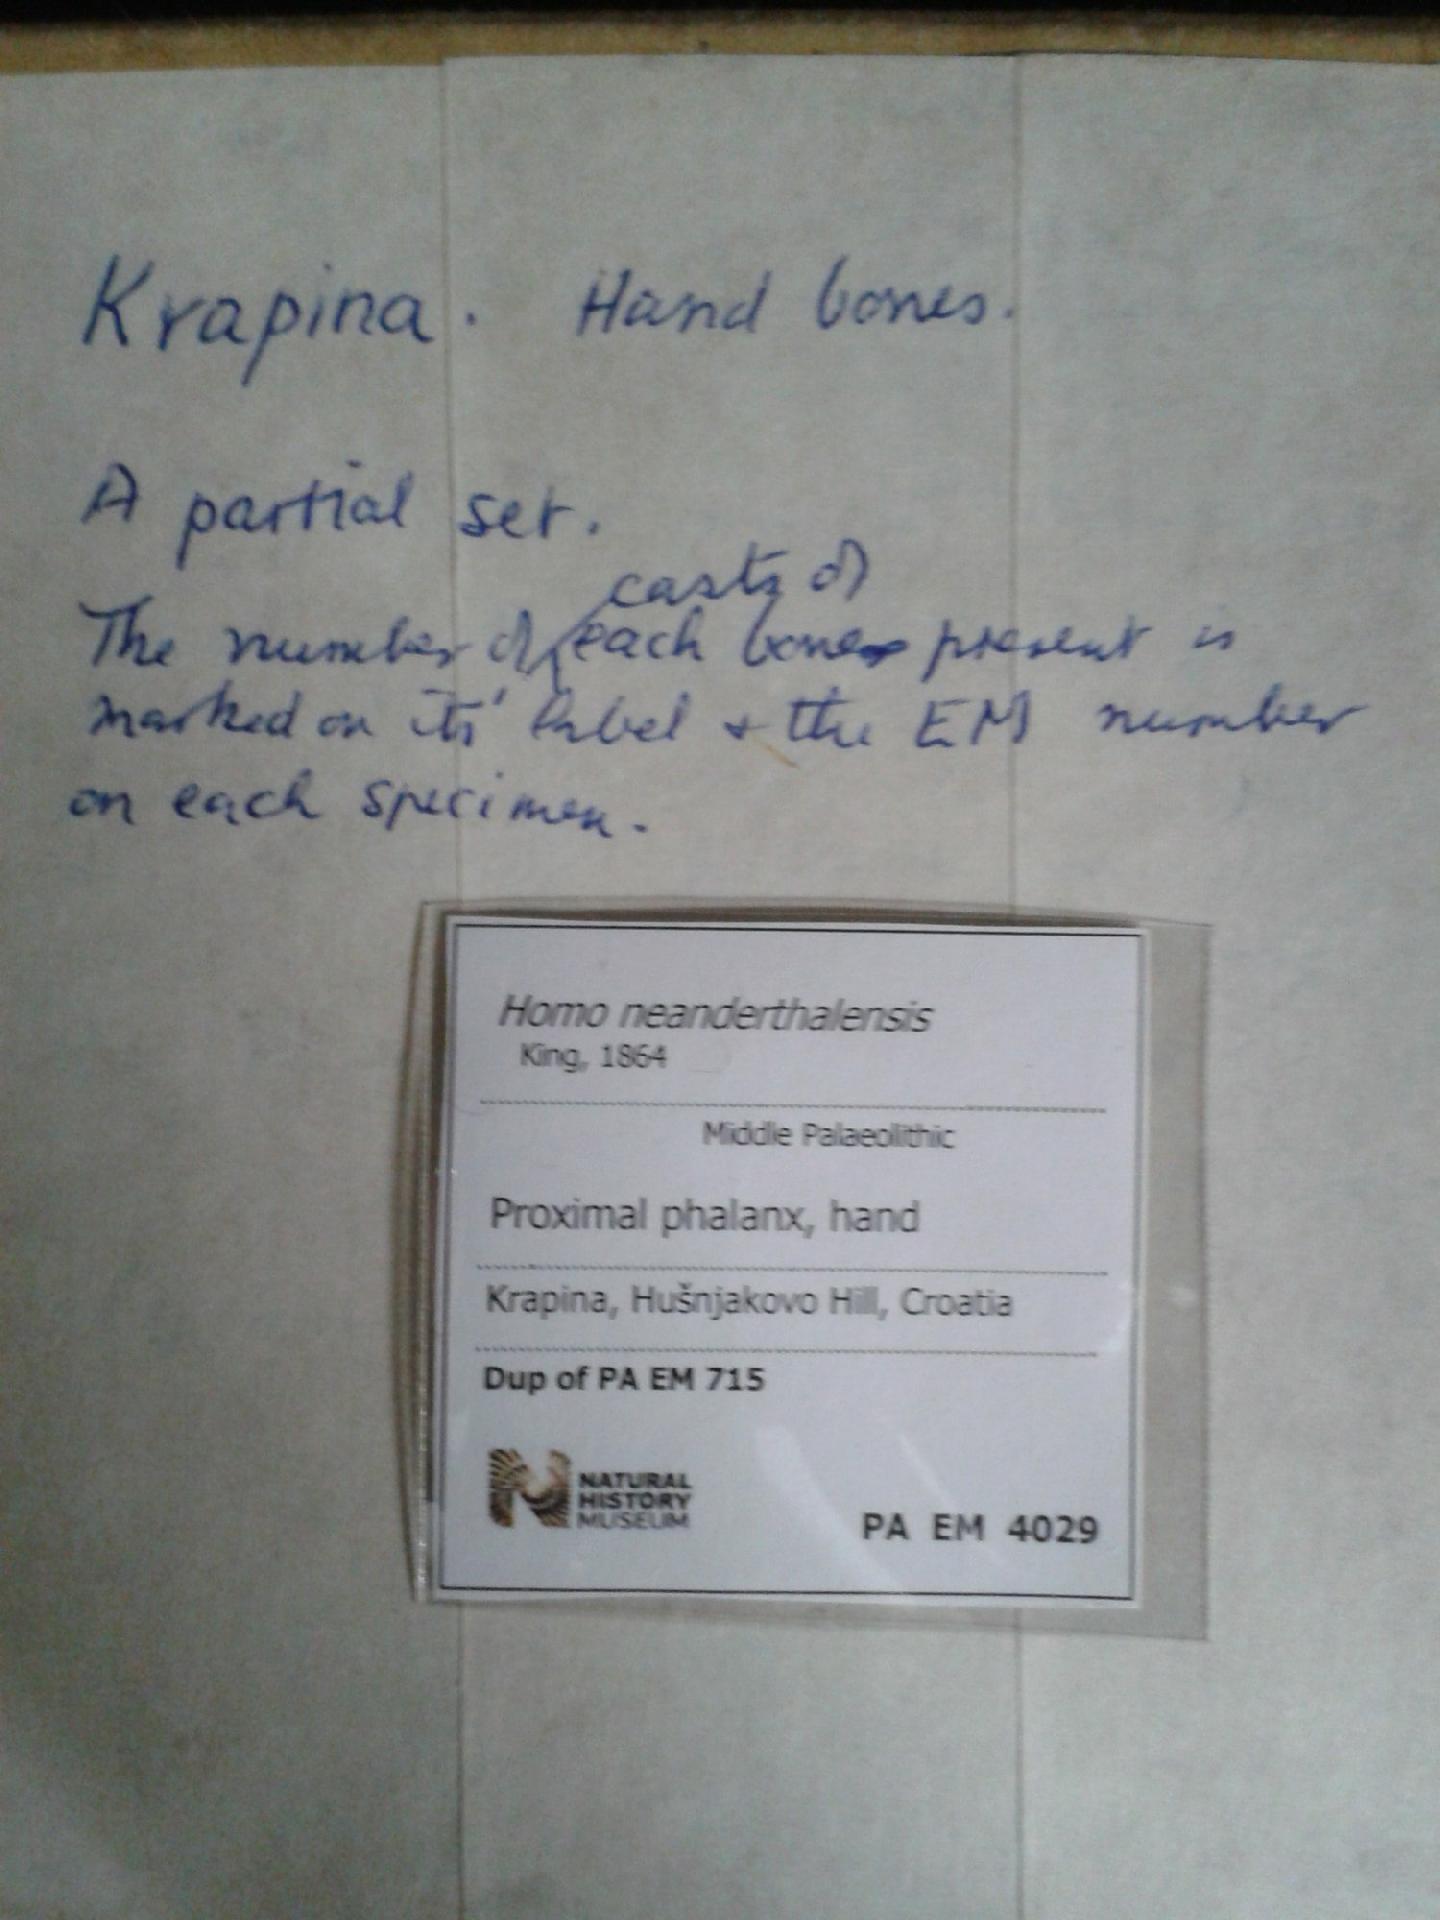 Krapina. Hand bones.
A partial set.
casts of
The number of each bone present is
marked on its' label + the EM number
on each specimen.
Homo neanderthalensis
King, 1864
Middle Palaeolithic
Proximal phalanx, hand
Krapina, Hušnjakovo Hill, Croatia
Dup of PA EM 715
NATURAL
HISTORY
MUSEUM
PA EM 4029